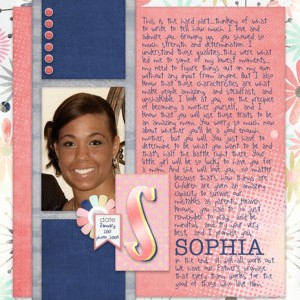 This is the hard part...thinking of what
to write to tell you how much I love and
admire you. Growing up, you showed so
much strength and determination. I
understand those qualities...they were what
led me to some of my lowest moments,
my need to figure things out on my own
without any input from anyone. But I also
know that those characteristics are what
make people amazing and steadfast, and
unshakable. I look at you, on the precipice
of becoming a mother yourself, and I
know that you will use those traits to be
an amazing mom. You worry so much now
about whether you'll be a good enough
mother, but you will. You just have to
determine to be what you want to be and
that's half the battle right there. Your
little girl will be so lucky to have you for
a mom. And she will love you, no matter
because that's how things are.
Children are given an amazing
capacity to survive our
mistakes as parents, heaven
knows, you just
remember to pray, and be
and try your very
best, and I promise you,
SOPHIA
in the end, it will all work out.
We have our Father's promise
that everything works for the
good of those who love Him.
S
date
january
2009